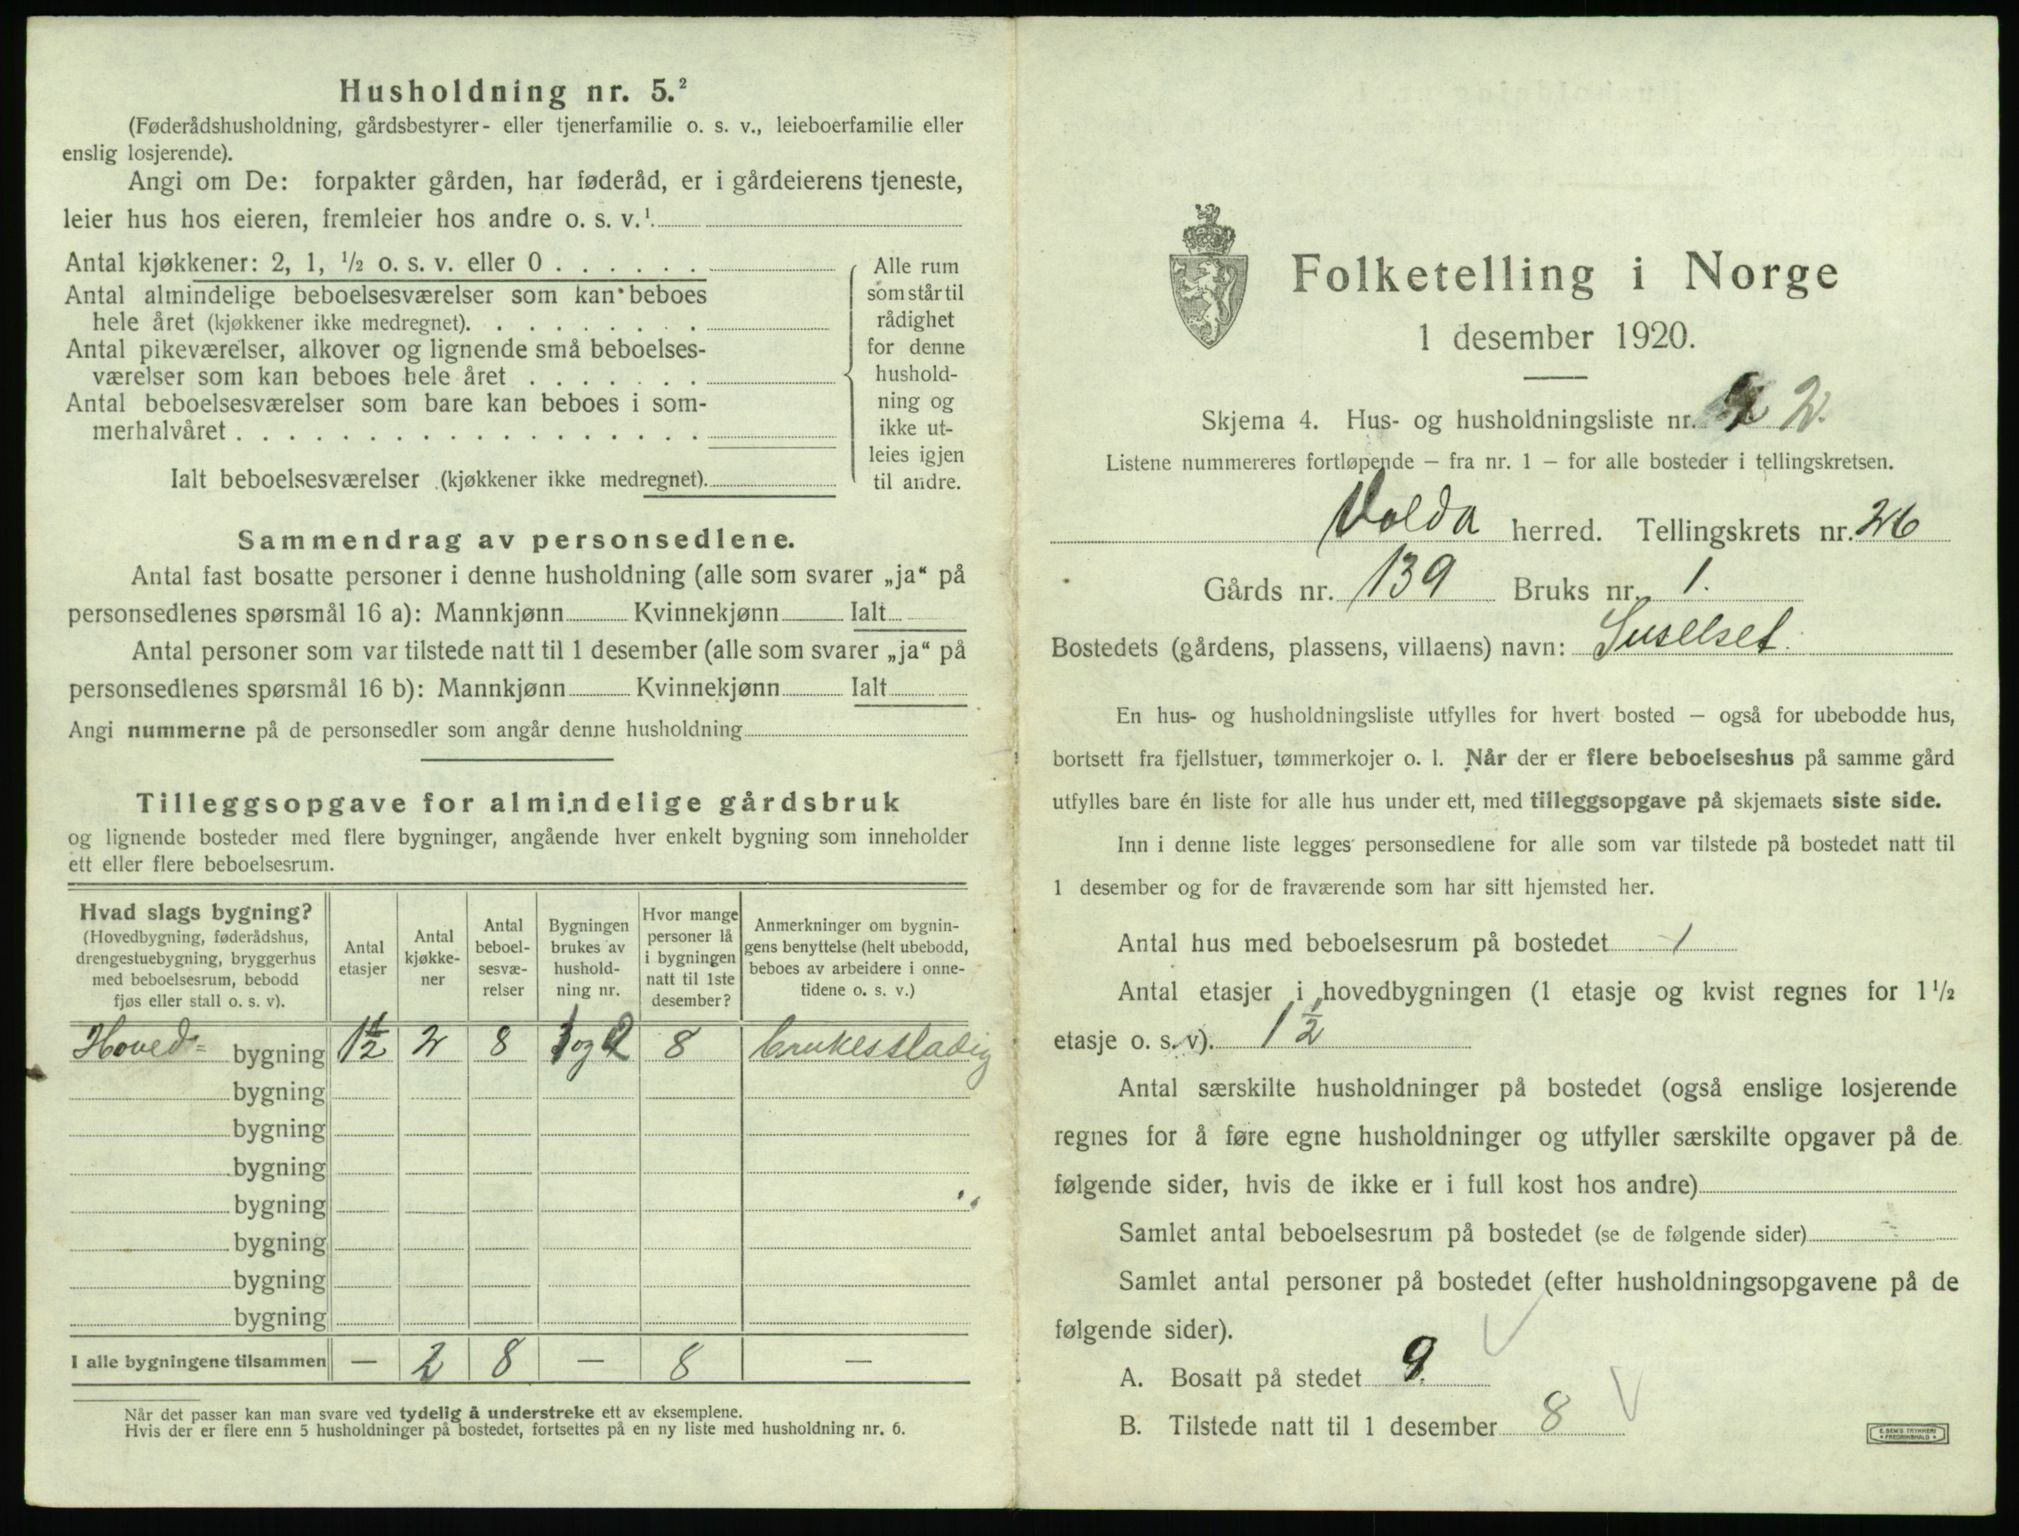 Husholdning nr. 5.²
(Føderådshusholdning, gårdsbestyrer- eller tjenerfamilie o. s. v., leieboerfamilie eller
enslig losjerende).
Angi om De: forpakter gården, har føderåd, er i gårdeierens tjeneste,
leier hus hos eieren, fremleier hos andre o. s. v.¹
Antal kjøkkener: 2, 1, ½ o. s. v. eller 0 . . . . . .
Antal almindelige beboelsesværelser som kan beboes
hele året (kjøkkener ikke medregnet). . . . . . . . .
Antal pikeværelser, alkover og lignende små beboelses-
værelser som kan beboes hele året . . . . . . .
Antal beboelsesværelser som bare kan beboes i som-
merhalvåret . . . . . . . . . . . . . . . . . .
Ialt beboelsesværelser (kjøkkener ikke medregnet).
Alle rum
som står til
rådighet
for denne
hushold-
ning og
ikke ut-
leies igjen
til andre.
Sammendrag av personsedlene.
Antal fast bosatte personer i denne husholdning (alle som svarer „ja“ på
personsedlenes spørsmål 16 a): Mannkjønn Kvinnekjønn Ialt
Antal personer som var tilstede natt til 1 desember (alle som svarer „ja“ på
personsedlenes spørsmål 16 b): Mannkjønn Kvinnekjønn Ialt
Angi nummerne på de personsedler som angår denne husholdning
Tilleggsopgave for almindelige gårdsbruk
og lignende bosteder med flere bygninger, angående hver enkelt bygning som inneholder
ett eller flere beboelsesrum.
Hvad slags bygning?
(Hovedbygning, føderådshus,
drengestuebygning, bryggerhus
med beboelsesrum, bebodd
fjøs eller stall o. s. v).
Antal
etasjer
Antal
kjøkke-
ner
Antal
beboel-
sesvæ-
relser
Bygningen
brukes av
hushold-
ning nr.
Hvor mange
personer lå
i bygningen
natt til 1ste
desember?
Anmerkninger om bygnin-
gens benyttelse (helt ubebodd,
beboes av arbeidere i onne-
tidene o. s. v.)
Hoved= bygning 1½ 2 8 1 og 2 8 brukesstadig
bygning
bygning
bygning
bygning
bygning
bygning
bygning
I alle bygningene tilsammen — 2 8 — 8 —
Når det passer kan man svare ved tydelig å understreke ett av eksemplene.
Hvis der er flere enn 5 husholdninger på bostedet, fortsettes på en ny liste med husholdning nr. 6.
Folketelling i Norge
1 desember 1920.
Skjema 4. Hus- og husholdningsliste nr. 2.
Listene nummereres fortløpende – fra nr. 1 – for alle bosteder i tellingskretsen.
Volda herred. Tellingskrets nr. 26
Gårds nr. 139 Bruks nr. 1.
Bostedets (gårdens, plassens, villaens) navn: Suselset.
En hus- og husholdningsliste utfylles for hvert bosted – også for ubebodde hus,
bortsett fra fjellstuer, tømmerkojer o. l. Når der er flere beboelseshus på samme gård
utfylles bare én liste for alle hus under ett, med tilleggsopgave på skjemaets siste side.
Inn i denne liste legges personsedlene for alle som var tilstede på bostedet natt til
1 desember og for de fraværende som har sitt hjemsted her.
Antal hus med beboelsesrum på bostedet 1
Antal etasjer i hovedbygningen (1 etasje og kvist regnes for 1½
etasje o. s. v). 1½
Antal særskilte husholdninger på bostedet (også enslige losjerende
regnes for å føre egne husholdninger og utfyller særskilte opgaver på de
følgende sider, hvis de ikke er i full kost hos andre)
Samlet antal beboelsesrum på bostedet (se de følgende sider)
Samlet antal personer på bostedet (efter husholdningsopgavene på de
følgende sider).
A. Bosatt på stedet 9.
B. Tilstede natt til 1 desember 8
E. SEM'S TRYKKERI
FREDRIKSHALD